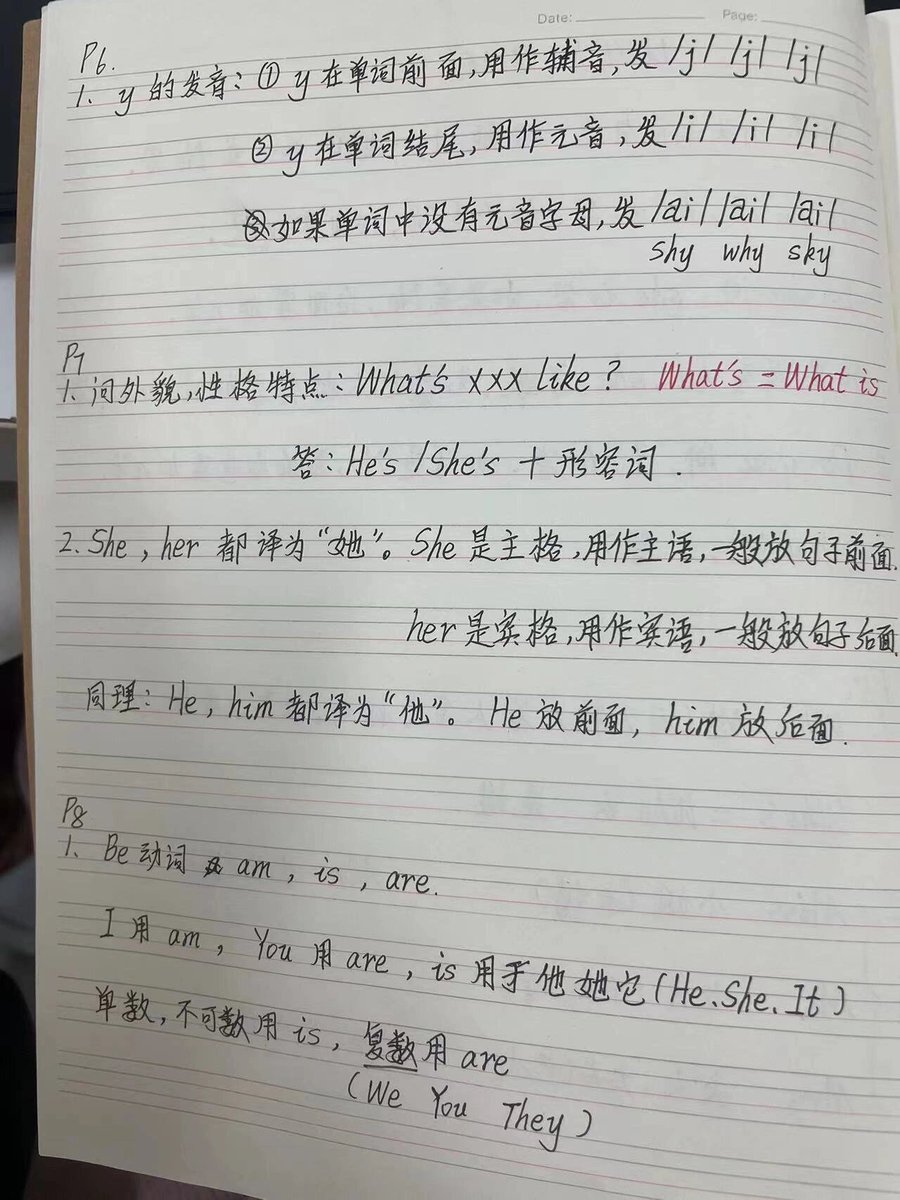 Date: Page:
P6.
1. y 的发音: ① y 在单词前面,用作辅音,发 /j/ /j/ /j/
② y 在单词结尾,用作元音,发 /i/ /i/ /i/
③如果单词中没有元音字母,发 /ai/ /ai/ /ai/
shy why sky
P7
1. 问外貌,性格特点: What's xxx like? What's = What is
答: He's /She's + 形容词.
2. She, her 都译为“她”。She 是主格,用作主语,一般放句子前面.
her 是宾格,用作宾语,一般放句子后面.
同理: He, him 都译为“他”。 He 放前面, him 放后面.
P8
1. Be动词 am, is, are.
I 用 am, You 用 are, is 用于他她它(He.She.It)
单数,不可数用 is, 复数用 are
(We You They)